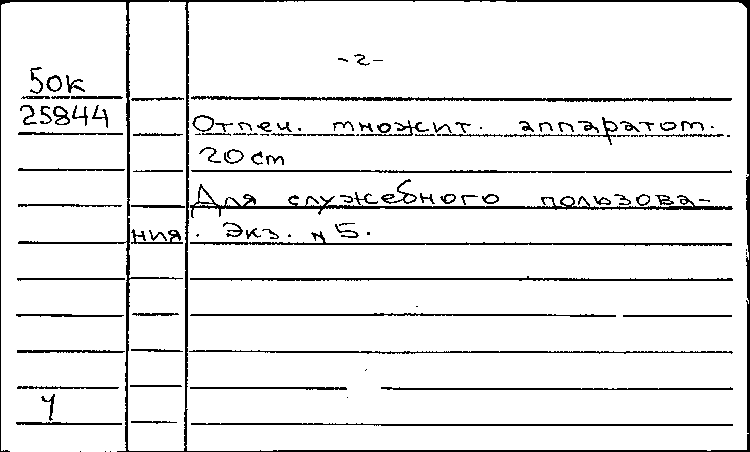 -2-
50к
25844
Отпеч. множит. аппаратом.
20 см
Для служебного пользова-
ния. Экз. № 5.